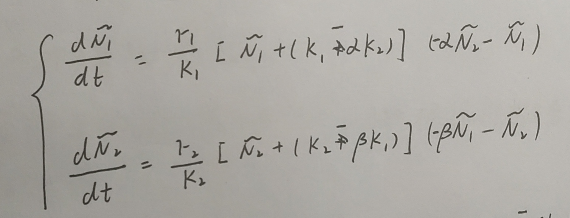 dÑ₁/dt = r₁/K₁ [ Ñ₁ + (K₁ - αK₂)] (-αÑ₂ - Ñ₁)
dÑ₂/dt = r₂/K₂ [ Ñ₂ + (K₂ - βK₁)] (-βÑ₁ - Ñ₂)